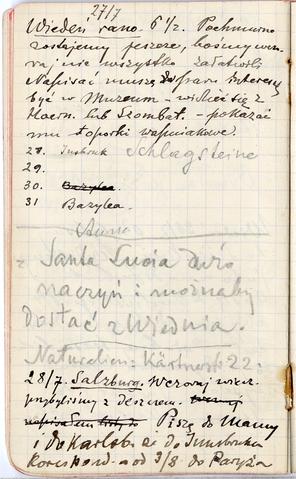 27/7
Wiedeń rano. 6 1/2. Pochmurno
zostajemy jeszcze, bośmy wczo
raj nie wszystko załatwili
Napisać muszę do
być w Muzeum - widzieć się z
Hoern. lub Szombat. - pokazać
mu toporki wapniakowe.
28. Insbruk Schlagsteine
29.
30. Bazylea
31 Bazylea.
Anna
Santa Lucia dużo
naczyń i możnaby
dostać z Wiednia.
Naturalien: Kärtnerstr 22.
28/7. Salzburg. Wczoraj wiecz.
przybyliśmy z deszczem.
napisałem listy do Piszę do Mamy
i do Karlsb. do Innsbruka
korespond - od 3/8 do Paryża